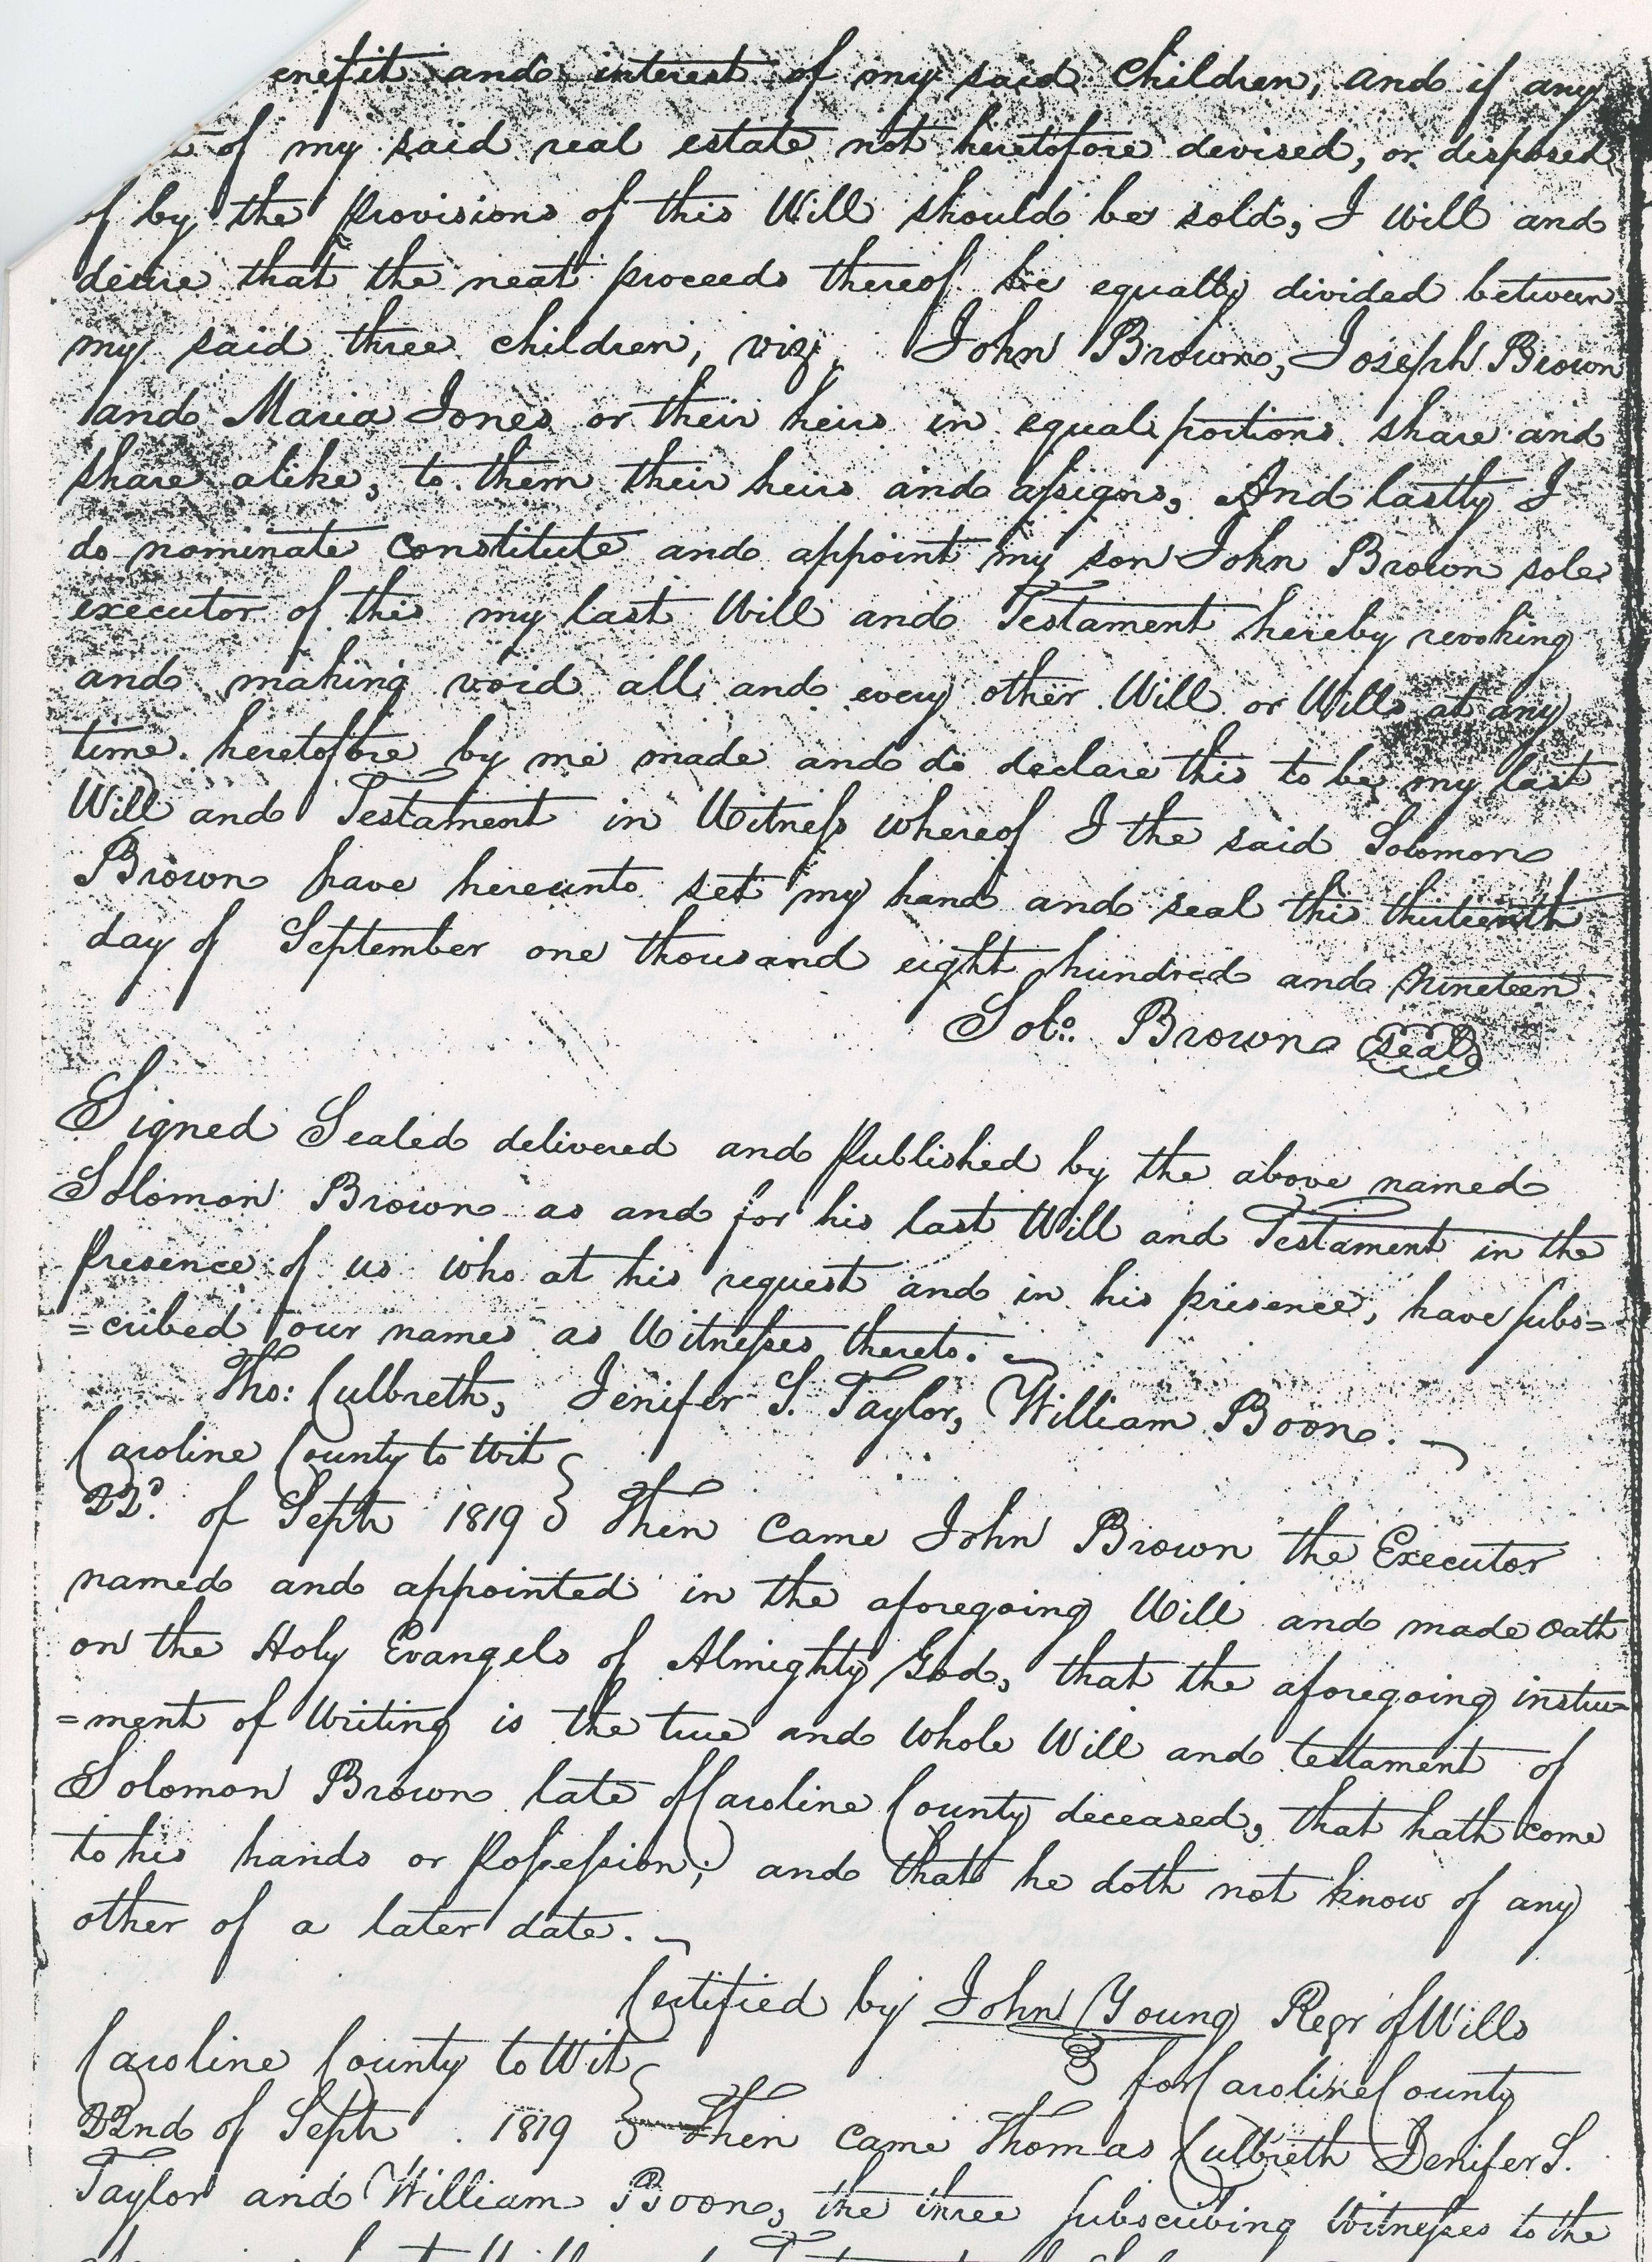 enefit and interest of my said Children, and if any
of my said real estate not heretofore devised, or disposed
of by the provisions of this Will should be sold, I will and
desire that the neat proceeds thereof be equally divided between
my said three children, viz, John Brown, Joseph Brown
and Maria Jones or their heirs in equal portions share and
share alike, to them their heirs and assigns, And lastly I
do nominate Constitute and appoint my son John Brown sole
executor of this my last Will and Testament hereby revoking
and making void all and every other Will or Wills at any
time heretofore by me made and do declare this to be my last
Will and Testament in Witness whereof I the said Solomon
Brown have hereunto set my hand and seal this thirteenth
day of September one thousand eight hundred and nineteen.
Solo. Brown Seal
Signed Sealed delivered and published by the above named
Solomon Brown as and for his last Will and Testament in the
presence of us who at his request and in his presence, have subs=
=cribed our names as Witnesses thereto.
Tho: Culbreth, Jenifer S. Taylor, William Boon.
Caroline County to Wit
22d. of Septr 1819 } Then Came John Brown the Executor
named and appointed in the aforegoing Will and made oath
on the Holy Evangels of Almighty God, that the aforegoing instru=
=ment of Writing is the true and whole Will and testament of
Solomon Brown late of Caroline County deceased, that hath come
to his hands or Possession; and that he doth not know of any
other of a later date.
Certified by John Young Regr of Wills
for Caroline County
Caroline County to Wit
22nd of Septr. 1819 } Then Came Thomas Culbreth Jenifer S.
Taylor and William Boon, the three subscribing Witnesses to the